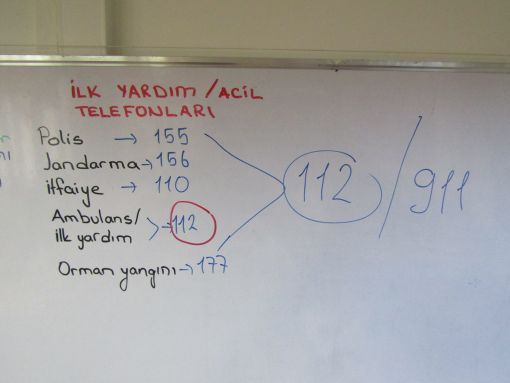 İLK YARDIM / ACİL
TELEFONLARI
Polis → 155
Jandarma → 156
itfaiye → 110
Ambulans/
ilk yardım → 112
Orman yangını → 177
112 / 911